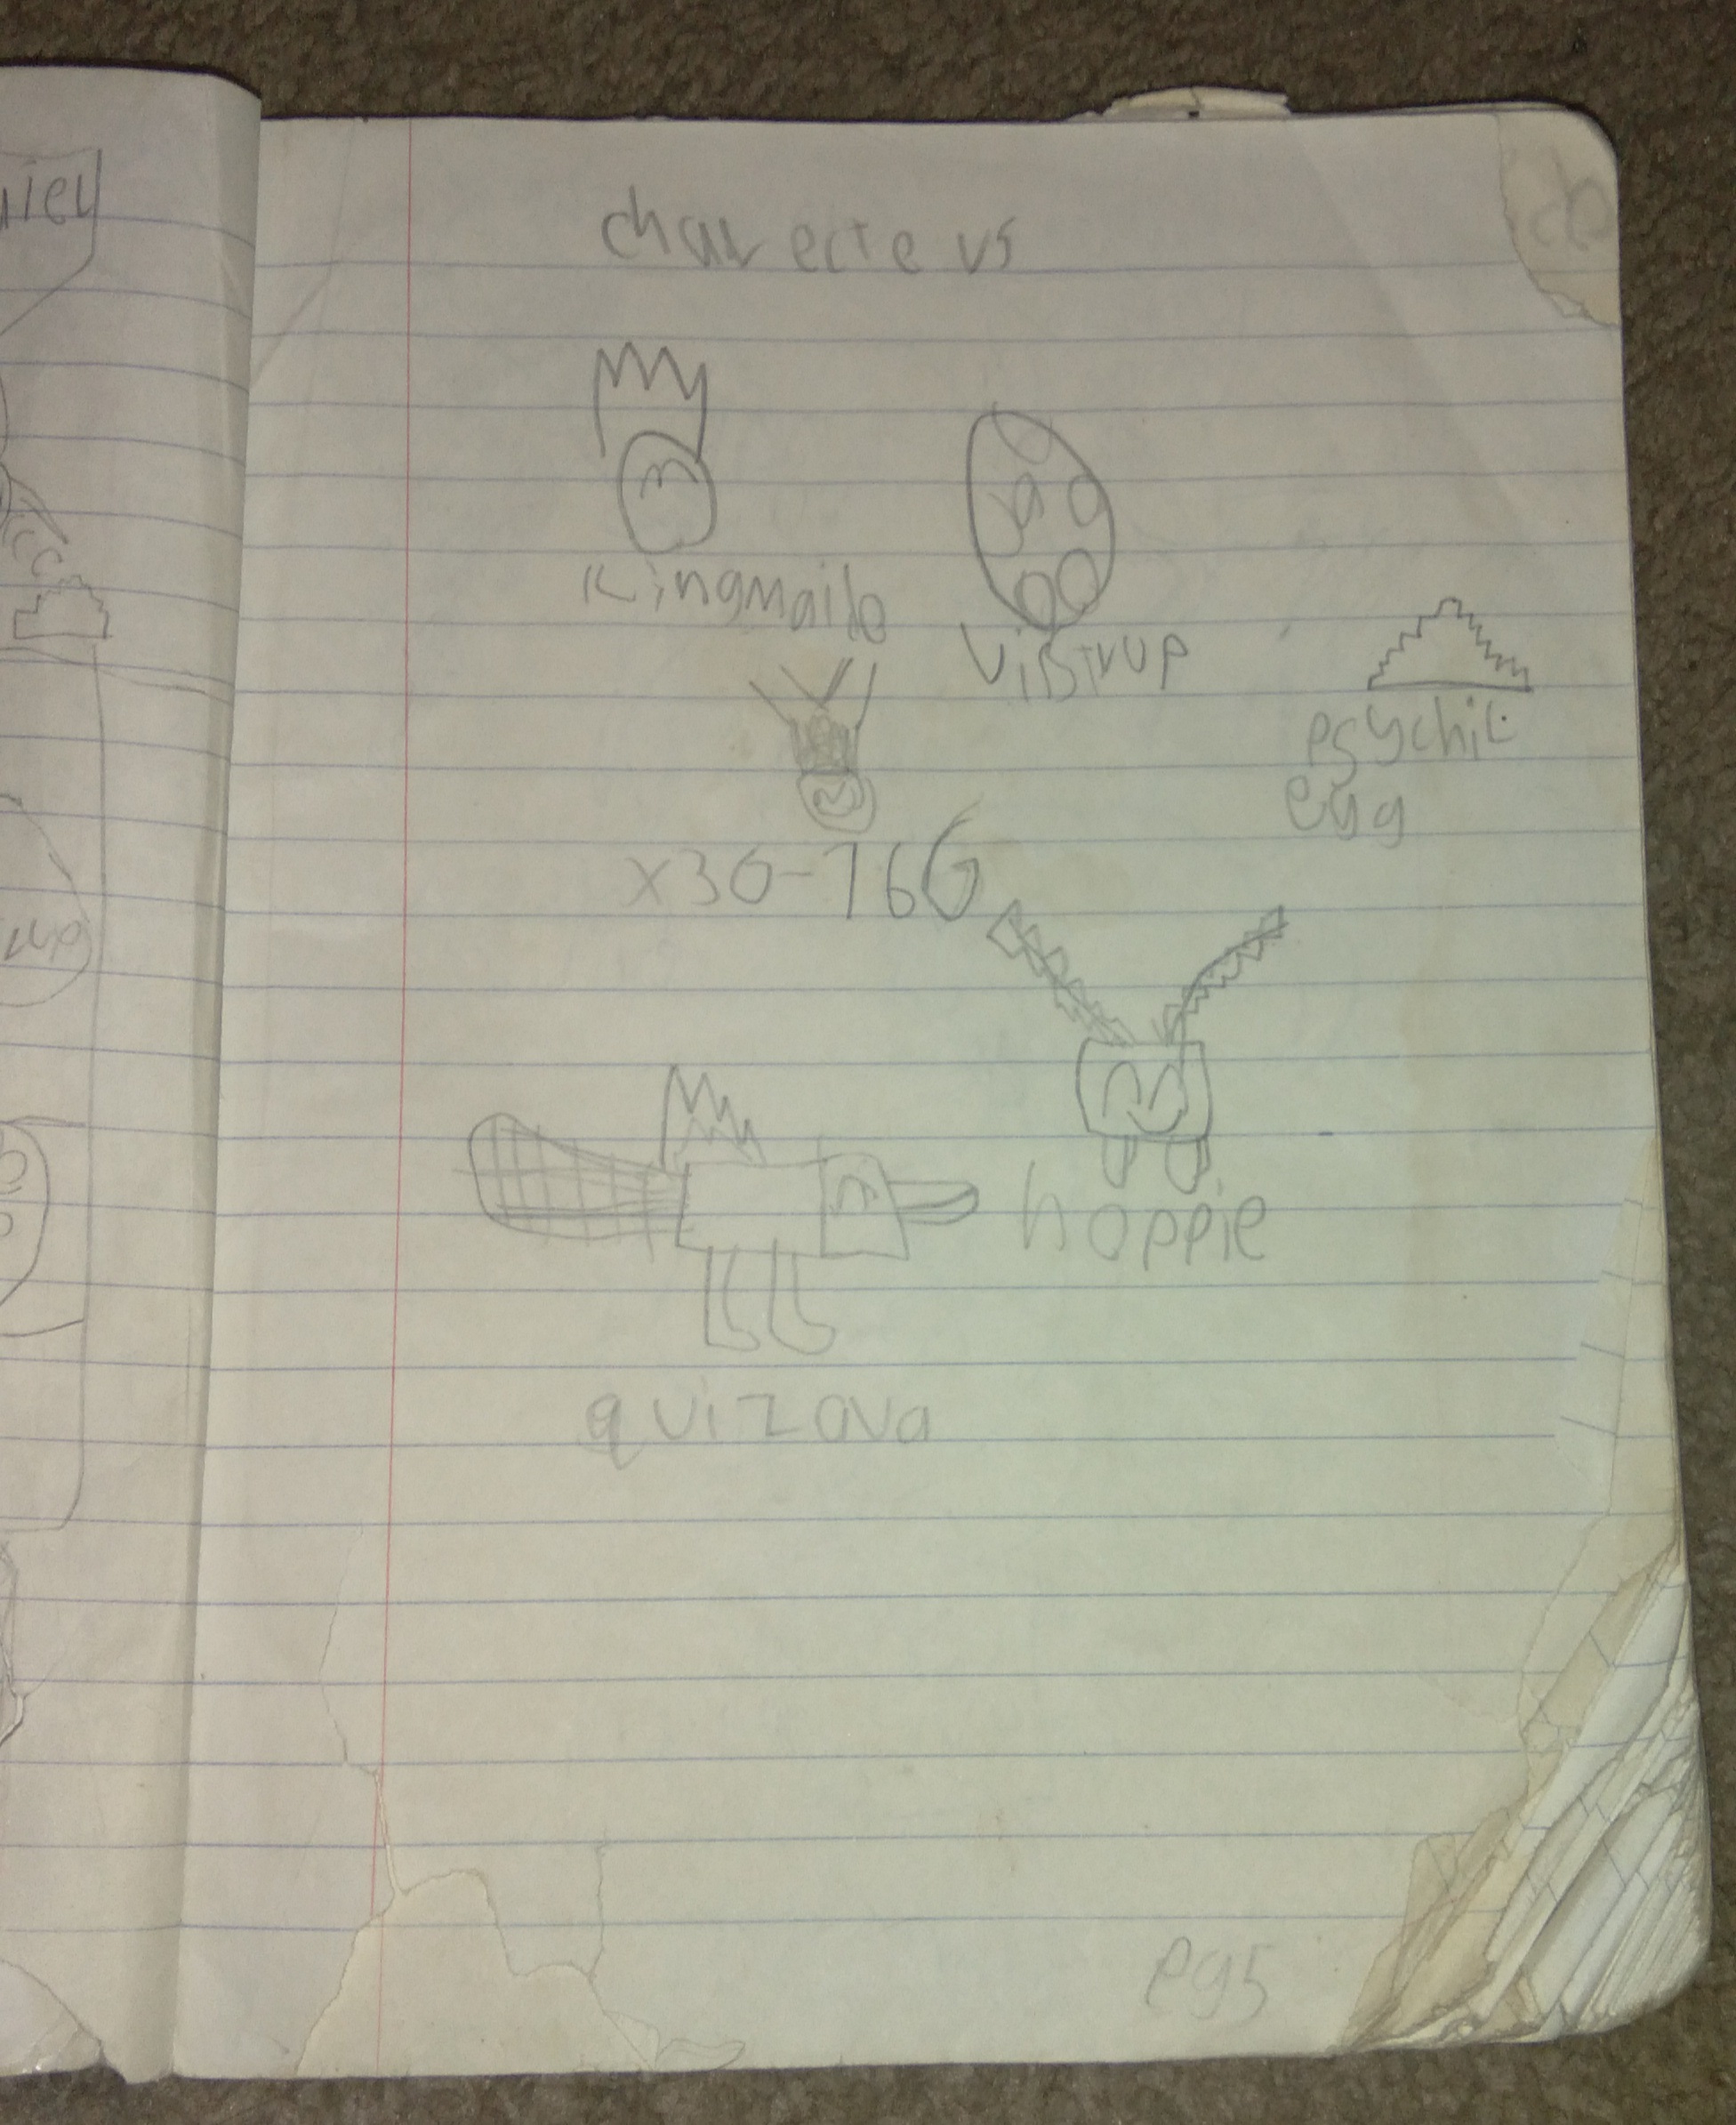 charecters
kingmailo
vistrup
psychic
egg
x30-166
hoppie
quizava
pg5